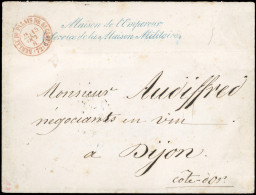 Maison de l'Empereur
de la Maison Militaire
Monsieur Audiffred
négociants en vin
a Dijon
côte-d'or